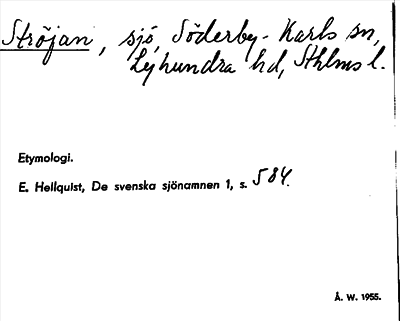 Ströjan, sjö, Söderby-Karls sn,
Lyhundra hd, Sthlms l.
Etymologi.
E. Hellquist, De svenska sjönamnen 1, s. 584.
Å. W. 1955.